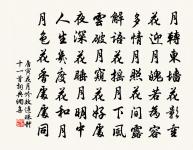 月轉東墻花影重
花迎月魄若為容
多情月照花間露
解語花搖月下風
雲破月窺花好處
夜深花睡月明中
人生幾度花和月
月色花香處處同
唐寅花月吟效連珠體
十一首詞典網集